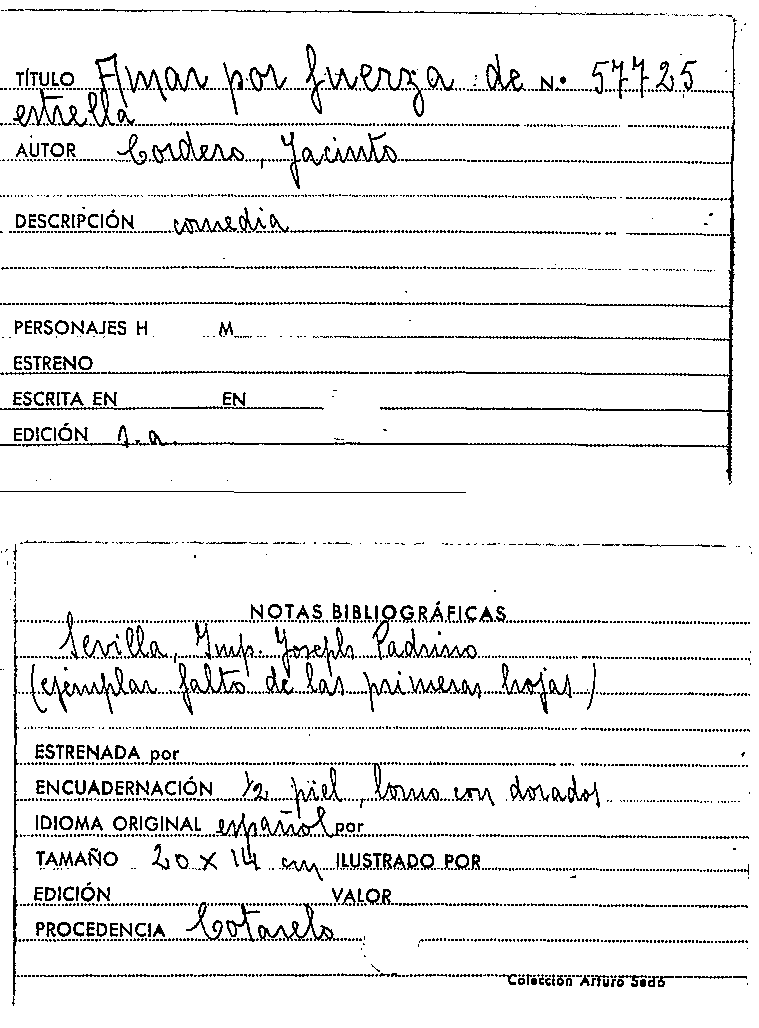 TÍTULO Amar por fuerza de N.º 57725
estrella
AUTOR Cordero, Jacinto
DESCRIPCIÓN comedia
PERSONAJES H M
ESTRENO
ESCRITA EN EN
EDICIÓN s.a.
NOTAS BIBLIOGRÁFICAS
Sevilla, Imp. Joseph Padrino
(ejemplar falto de las primeras hojas)
ESTRENADA por
ENCUADERNACIÓN 1/2 piel, lomo con dorados
IDIOMA ORIGINAL español por
TAMAÑO 20 x 14 cm ILUSTRADO POR
EDICIÓN VALOR
PROCEDENCIA Cotarelo
Colección Arturo Sedó